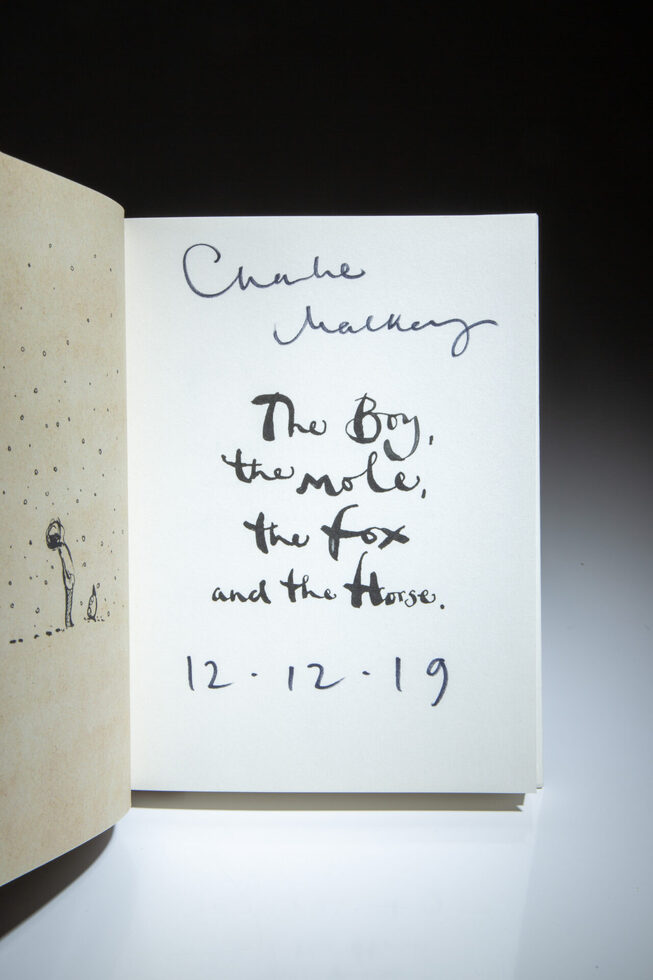 Charlie
Mackesy
The Boy,
the mole,
the fox
and the Horse.
12 · 12 · 19